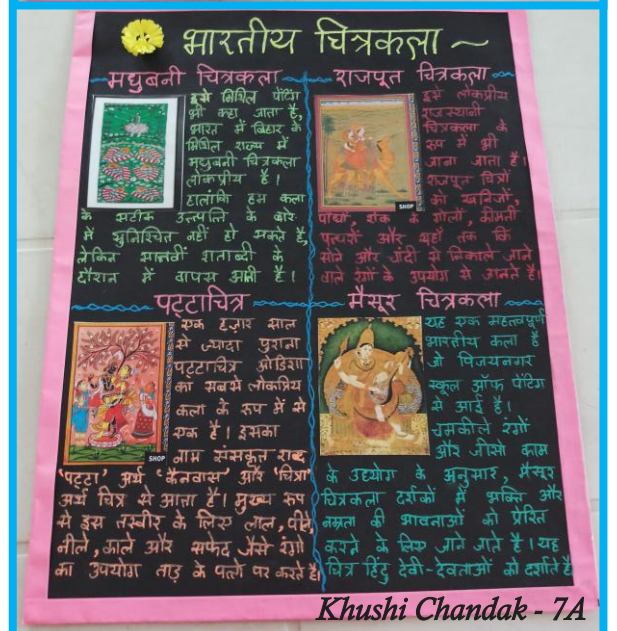 भारतीय चित्रकला ~
मधुबनी चित्रकला
इसे मिथिल पेंटिंग
भी कहा जाता है,
भारत में बिहार के
मिथिल राज्य में
मधुबनी चित्रकला
लोकप्रीय है।
हालांकि हम कला
के सटीक उत्तपत्ति के बारे
में सुनिश्चित नहीं हो सकते है,
लेकिन सातवीं शताब्दी के
दौरान में वापस आती है।
राजपूत चित्रकला
इसे लोकप्रीय
राजस्थानी
चित्रकला के
रूप में भी
जाना जाता है।
राजपूत चित्रों
को खनिजों,
पौधों शंक के गोलों, कीमती
पत्थरों और यहाँ तक कि
सोने और चाँदी से निकाले जाने
वाले रंगों के उपयोग से जानते है।
SHOP
पट्टाचित्र
एक हज़ार साल
से ज्यादा पुराना
पट्टाचित्र ओडिशा
का सबसे लोकप्रिय
कला के रूप में से
एक है। इसका
नाम संस्कृत शब्द
'पट्टा' अर्थ 'कैनवास' और 'चित्रा'
अर्थ चित्र से आता है। मुख्य रूप
से इस तस्वीर के लिए लाल, पीले
नीले, काले और सफेद जैसे रंगो
का उपयोग ताड़ के पत्ते पर करते है।
SHOP
मैसूर चित्रकला
यह एक महत्वपूर्ण
भारतीय कला है
जो विजयनगर
स्कूल ऑफ पेंटिंग
से आई है।
चमकीले रंगों
और जीसो काम
के उद्योग के अनुसार, मैसूर
चित्रकला दर्शकों में भक्ति और
नम्रता की भावनाओं को प्रेरित
करने के लिए जाने जाते है। यह
चित्र हिंदु देवी-देवताओं को दर्शाते है
Khushi Chandak - 7A